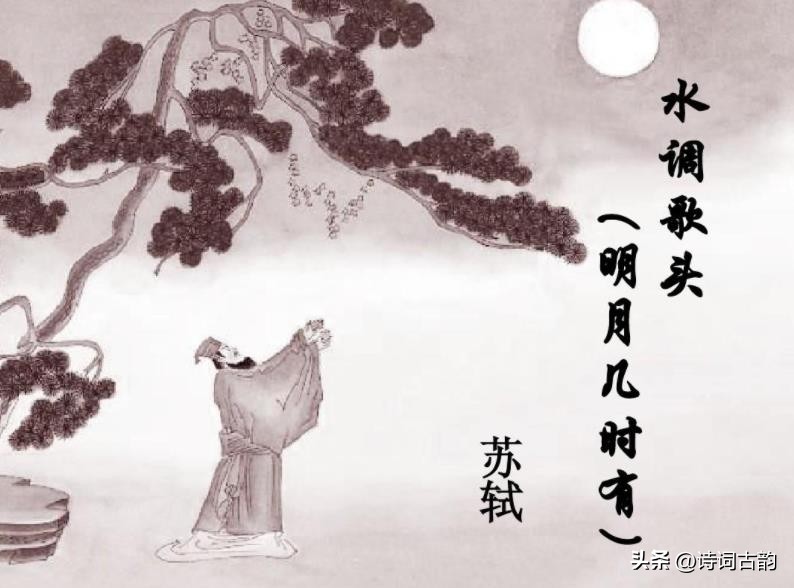 水调歌头
（明月几时有）
苏轼
头条 @诗词古韵